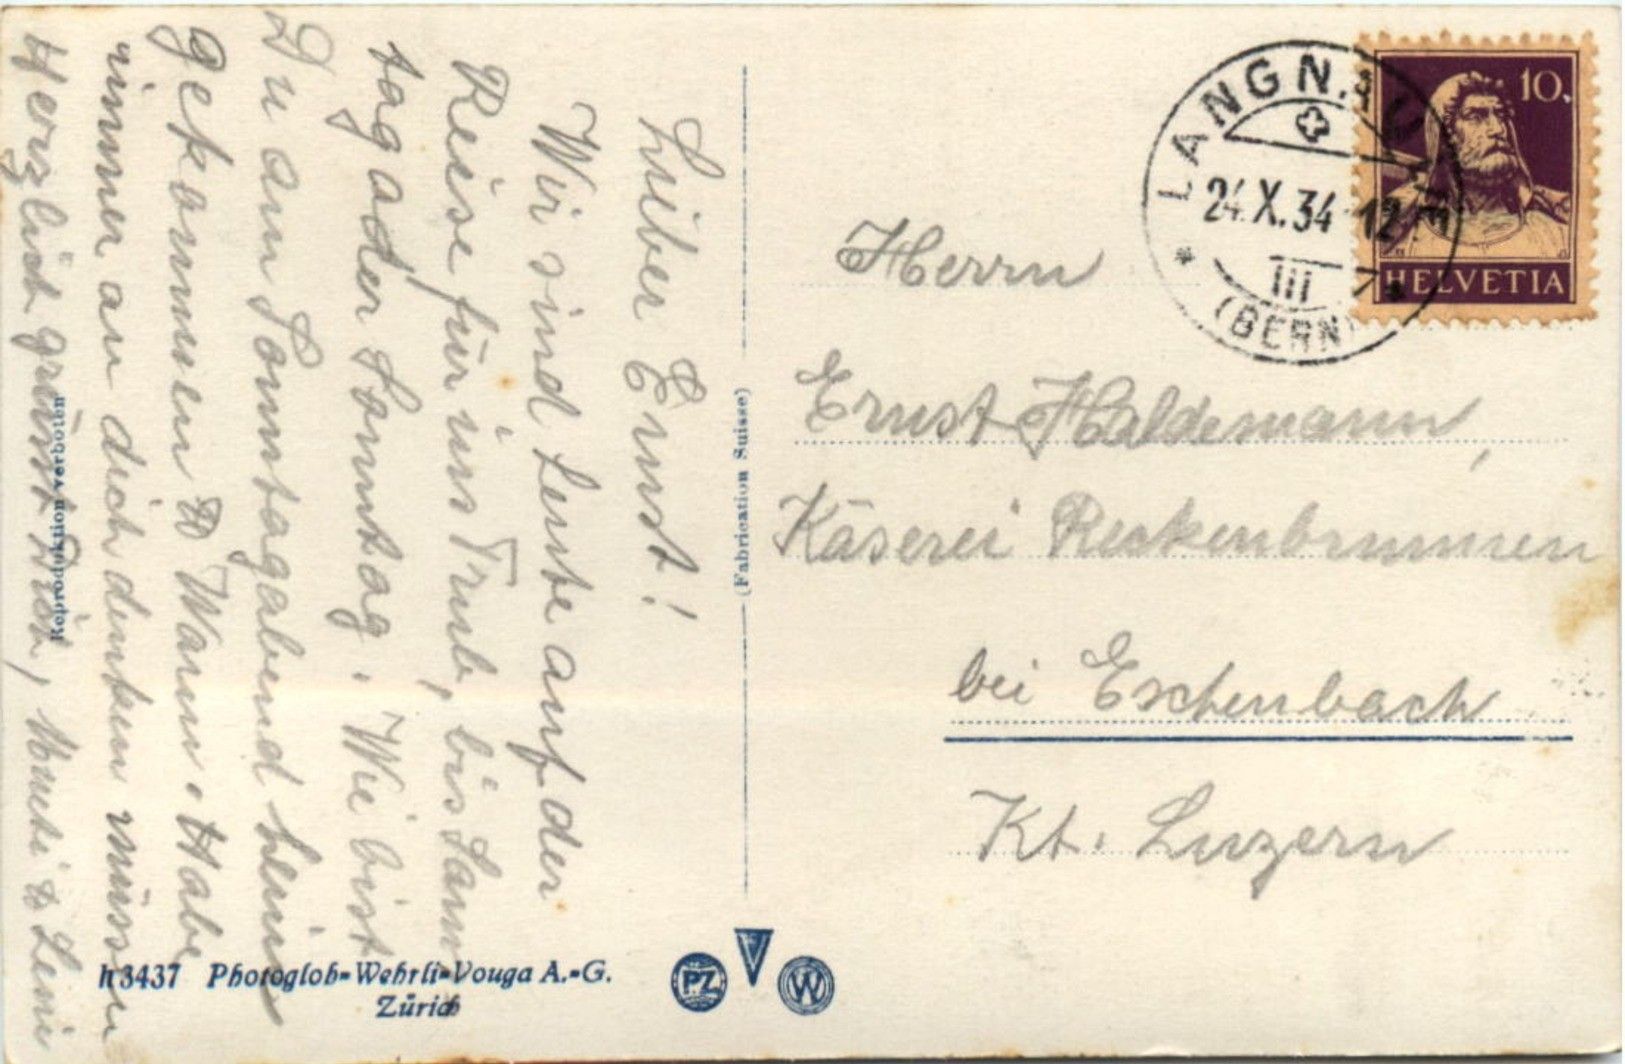 Lieber Ernst!
Wir sind heute auf der
Reise für ins Trub, bis Sams
tag oder Sonntag. Wie bist
Du am Sonntagabend heim
gekommen & Wann. Habe
immer an dich denken müssen
Herzlich grüsst Dich, & Leni
Herrn
Ernst Haldemann,
Käserei
bei Eschenbach
Kt. Luzern
LANGNAU
24.X.34-12
III
(BERN)
10.
HELVETIA
(Fabrication Suisse)
Reproduktion verboten
h 3437 Photoglob=Wehrli=Vouga A.=G.
Zürich
PZ
V
W